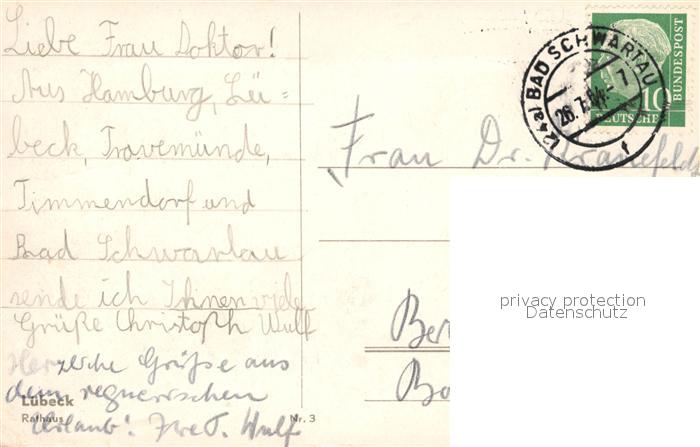 Liebe Frau Doktor!
Aus Hamburg, Lü=
beck, Travemünde,
Timmendorf und
Bad Schwartau
sende ich Ihnen viele
Grüße Christoph Wulf
Herzliche Grüße aus
dem regnerischen
Urlaub! Ihre T. Wulf
Lübeck
Rathaus
Nr. 3
(24a) BAD SCHWARTAU
26.7.
f
10
DEUTSCHE
BUNDESPOST
Frau Dr. Kranefeld
Ber
Bo
privacy protection
Datenschutz